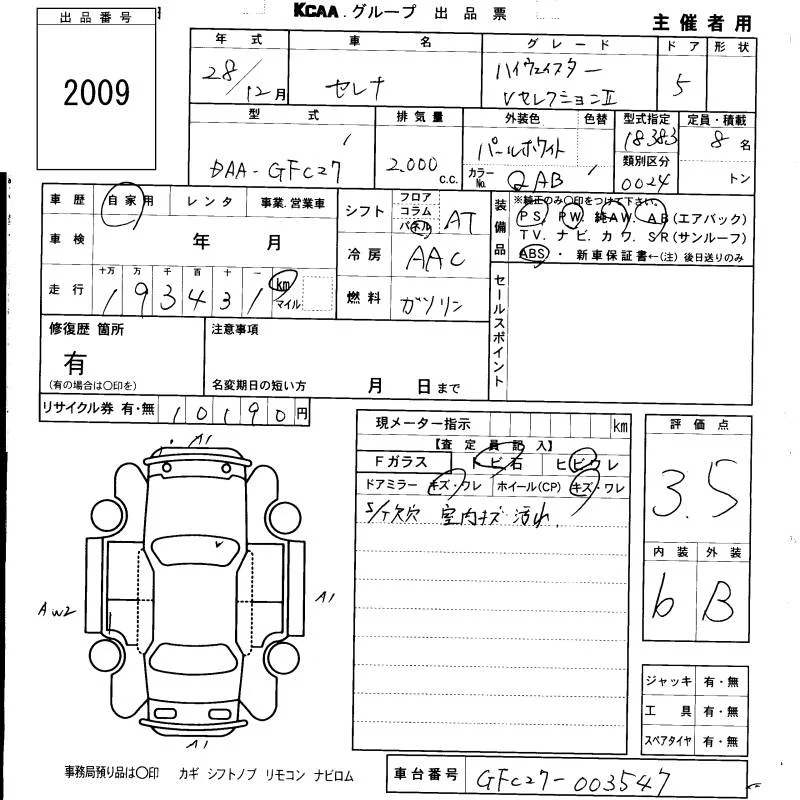 KCAA.グループ 出品票
主催者用
出品番号
2009
年式 車名 グレード ドア 形状
28/12月 セレナ ハイウェイスター VセレクションⅡ 5
型式 排気量 外装色 色替 型式指定 定員・積載
DAA-GFC27 2.000 c.c. パールホワイト 18383 8 名
カラーNo. QAB 類別区分 0024 トン
車歴 自家用 レンタ 事業.営業車
シフト フロア コラム パネル AT
装備品 ※純正のみ〇印をつけて下さい。
PS PW 純AW. AB(エアバック)
TV. ナビ. カワ. SR(サンルーフ)
ABS ・ 新車保証書←(注)後日送りのみ
車検 年 月
冷房 AAC
走行 十万 万 千 百 十 一
193431 km マイル
燃料 ガソリン
セールスポイント
修復歴 箇所
有
(有の場合は〇印を)
注意事項
名変期日の短い方 月 日まで
リサイクル券 有・無 10190円
現メーター指示 km
【査定員記入】
Fガラス トビ石 ヒビワレ
ドアミラー キズ・ワレ ホイール(CP) キズ・ワレ
S/T欠 穴 室内キズ 汚れ.
評価点
3.5
内装 外装
b B
A1
AW2
A1
A1
ジャッキ 有・無
工具 有・無
スペアタイヤ 有・無
事務局預り品は〇印 カギ シフトノブ リモコン ナビロム
車台番号 GFC27-003547